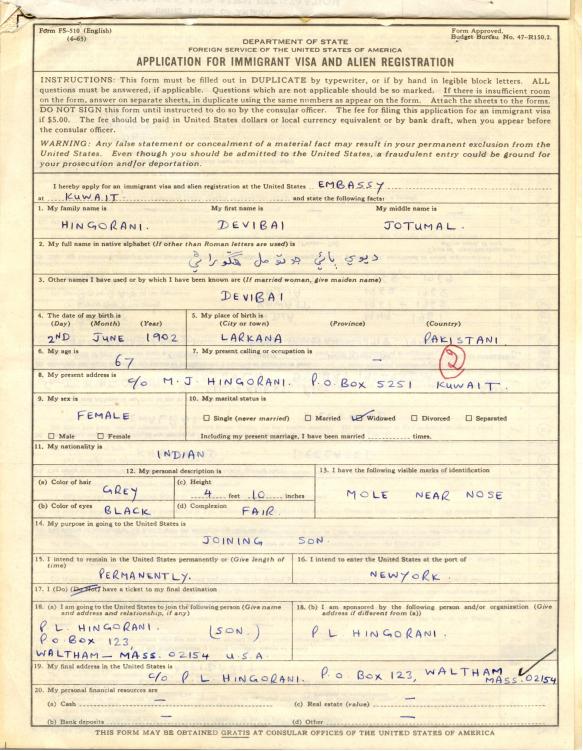 Form FS-510 (English)
(6-65)
Form Approved,
Budget Bureau No. 47-R150.2.
DEPARTMENT OF STATE
FOREIGN SERVICE OF THE UNITED STATES OF AMERICA
APPLICATION FOR IMMIGRANT VISA AND ALIEN REGISTRATION
INSTRUCTIONS: This form must be filled out in DUPLICATE by typewriter, or if by hand in legible block letters. ALL
questions must be answered, if applicable. Questions which are not applicable should be so marked. If there is insufficient room
on the form, answer on separate sheets, in duplicate using the same numbers as appear on the form. Attach the sheets to the forms.
DO NOT SIGN this form until instructed to do so by the consular officer. The fee for filing this application for an immigrant visa
if $5.00. The fee should be paid in United States dollars or local currency equivalent or by bank draft, when you appear before
the consular officer.
WARNING: Any false statement or concealment of a material fact may result in your permanent exclusion from the
United States. Even though you should be admitted to the United States, a fraudulent entry could be ground for
your prosecution and/or deportation.
I hereby apply for an immigrant visa and alien registration at the United States EMBASSY
at KUWAIT and state the following facts:
1. My family name is My first name is My middle name is
HINGORANI. DEVIBAI JOTUMAL.
2. My full name in native alphabet (If other than Roman letters are used) is
3. Other names I have used or by which I have been known are (If married woman, give maiden name)
DEVIBAI
4. The date of my birth is 5. My place of birth is
(Day) (Month) (Year) (City or town) (Province) (Country)
2ND JUNE 1902 LARKANA PAKISTANI.
6. My age is 67 7. My present calling or occupation is —
2
8. My present address is c/o M. J. HINGORANI. P.O. BOX 5251 KUWAIT.
9. My sex is 10. My marital status is
FEMALE
Single (never married) Married Widowed Divorced Separated
Male Female Including my present marriage, I have been married times.
11. My nationality is INDIAN
12. My personal description is 13. I have the following visible marks of identification
(a) Color of hair GREY (c) Height 4 feet 10 inches
MOLE NEAR NOSE
(b) Color of eyes BLACK (d) Complexion FAIR.
14. My purpose in going to the United States is
JOINING SON.
15. I intend to remain in the United States permanently or (Give length of
time) 16. I intend to enter the United States at the port of
PERMANENTLY. NEWYORK.
17. I (Do) (Do Not) have a ticket to my final destination
18. (a) I am going to the United States to join the following person (Give name
and address and relationship, if any)
18. (b) I am sponsored by the following person and/or organization (Give
address if different from (a))
P L HINGORANI. (SON.) P L HINGORANI.
P.O. BOX 123,
WALTHAM — MASS. 02154 U.S.A.
19. My final address in the United States is
c/o P L HINGORANI. P.O. BOX 123, WALTHAM
MASS. 02154
20. My personal financial resources are
(a) Cash — (c) Real estate (value) —
(b) Bank deposits — (d) Other —
THIS FORM MAY BE OBTAINED GRATIS AT CONSULAR OFFICES OF THE UNITED STATES OF AMERICA